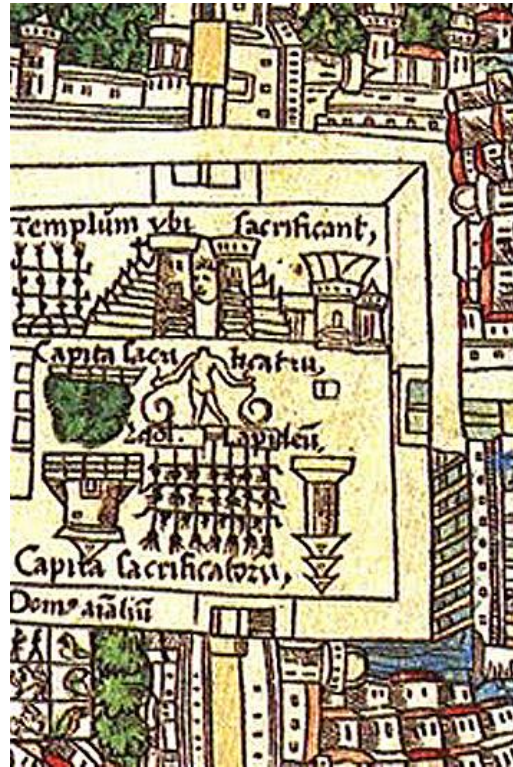 Templum vbi sacrificant,
Capita sacri ficatu,
Idol. Lapideū,
Capita sacrificatorū,
Domꝰ aīaliū